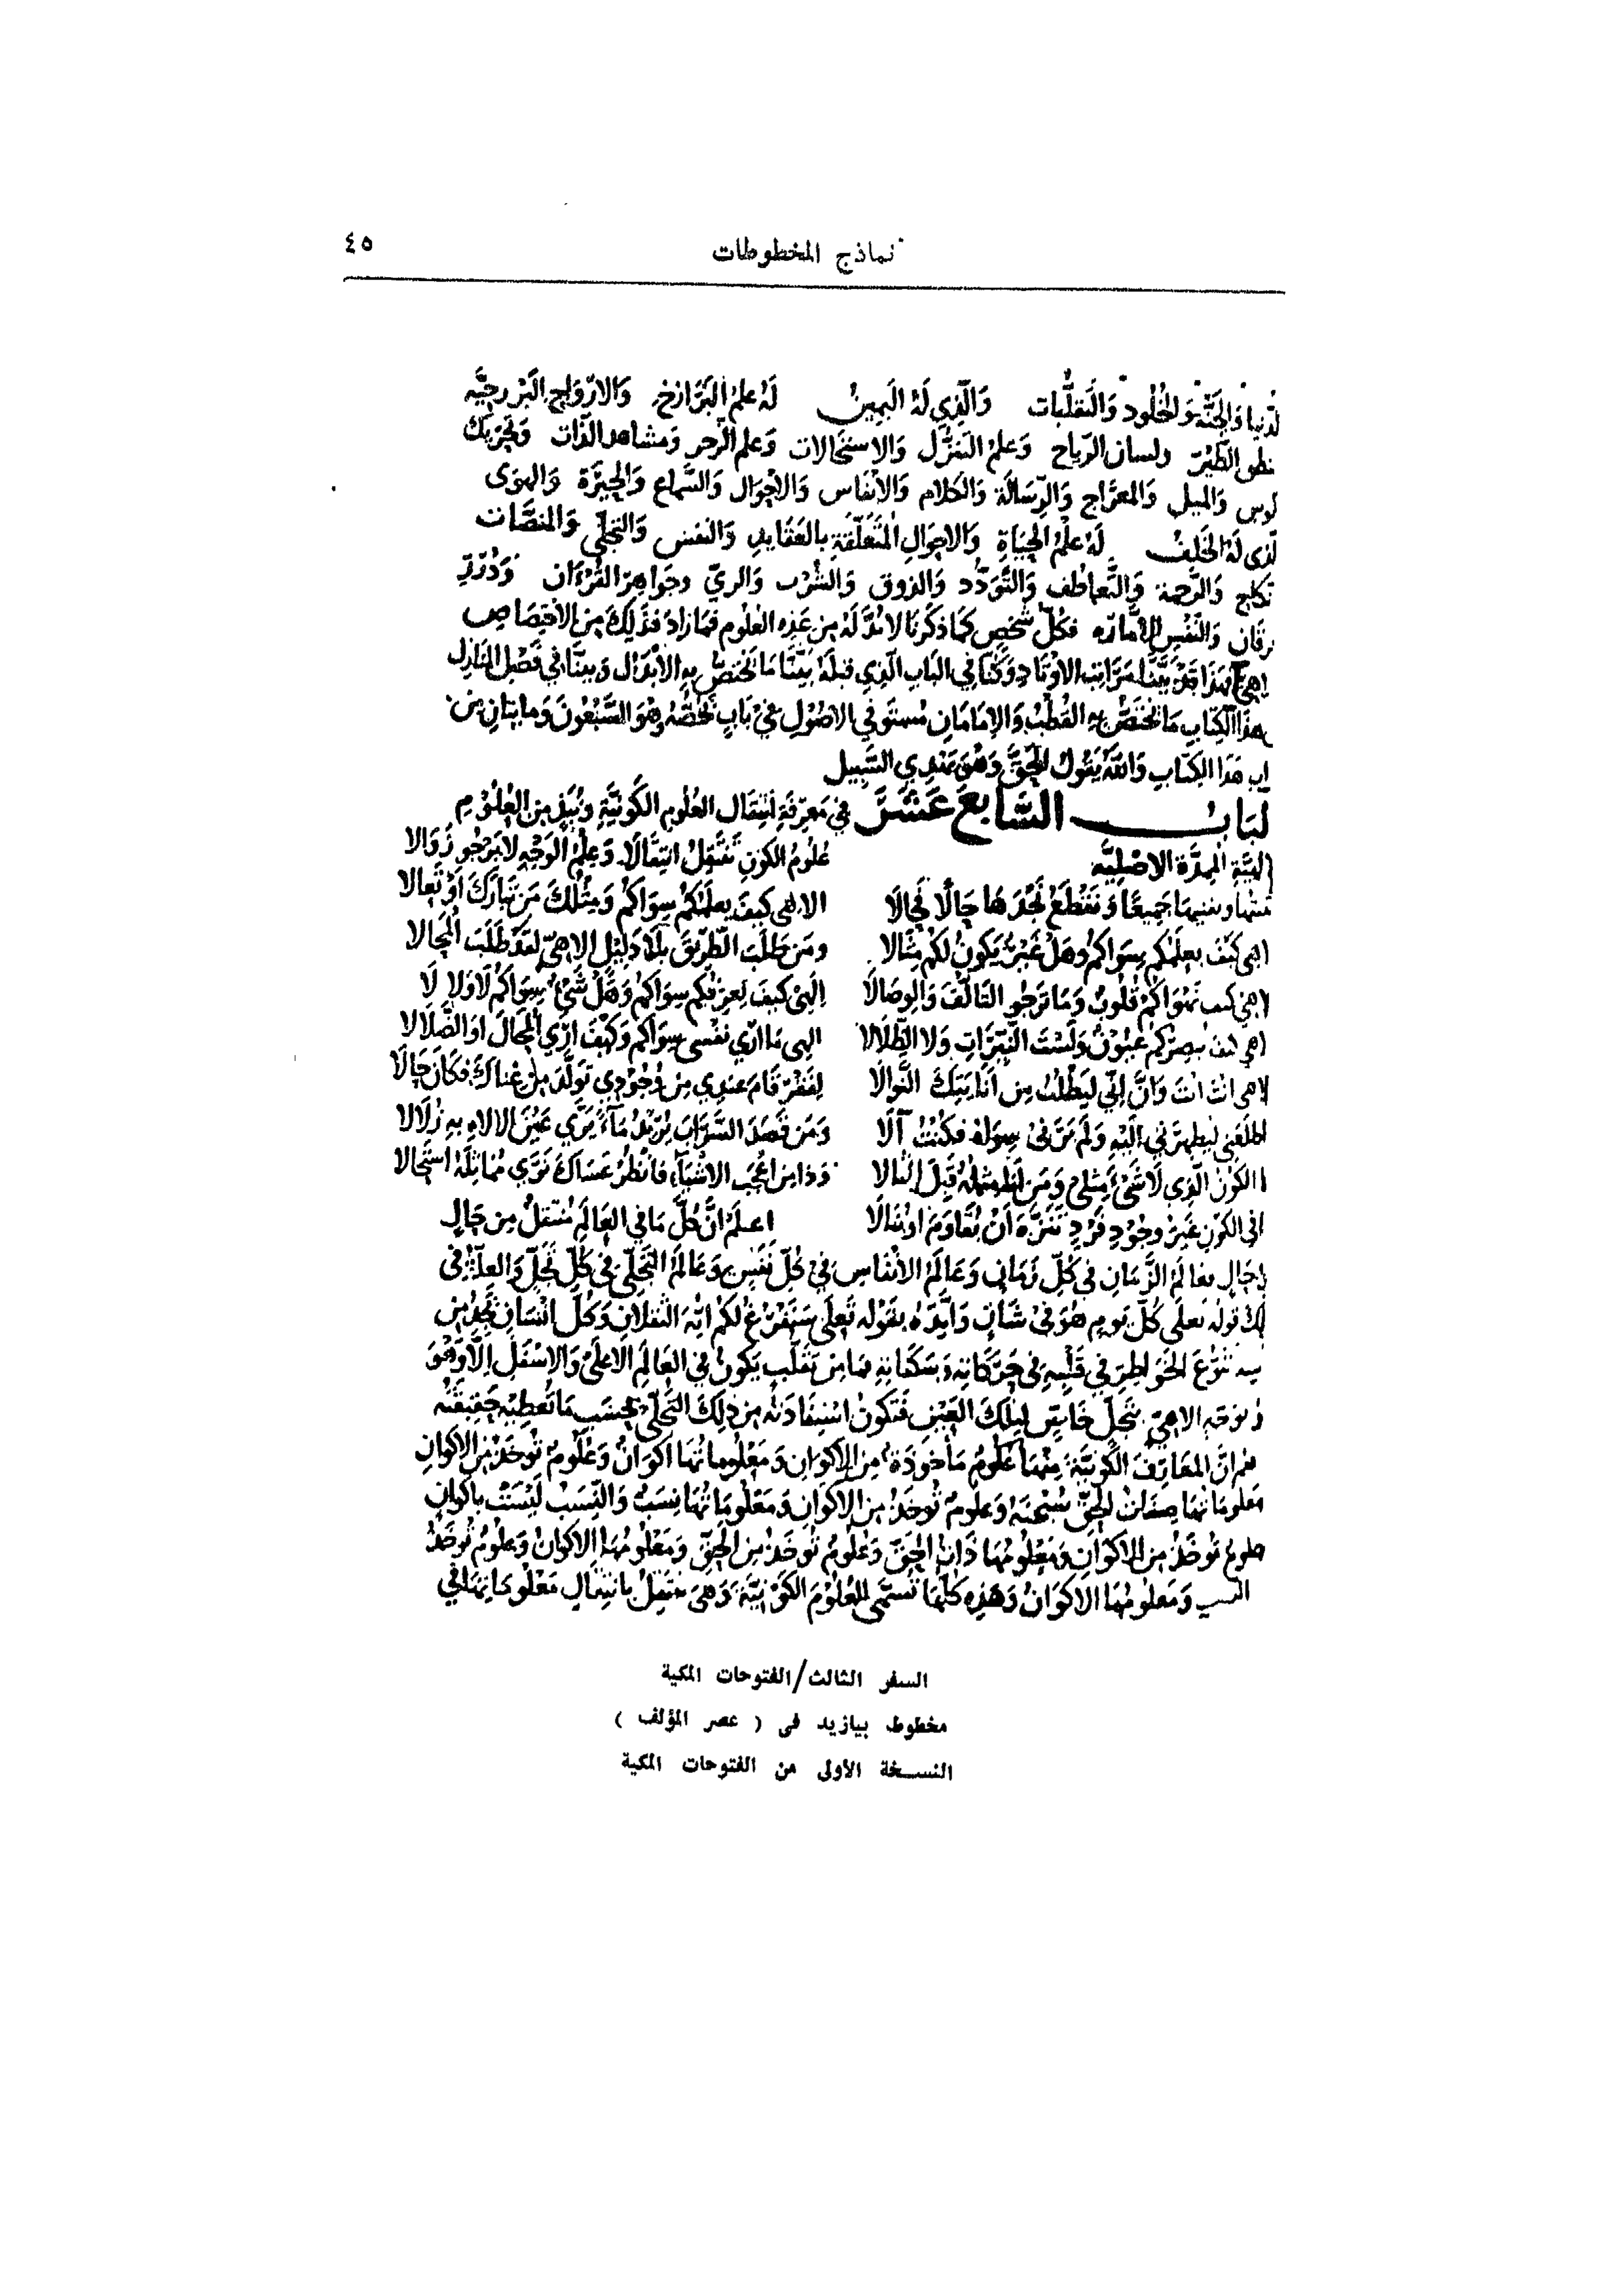 نماذج المخطوطات ٤٥
لدنيا والجنة والخلود والتقلبات والذي له اليمين له علم البرازخ والارواح البرزخيه
نطق الطير ولسان الرياح وعلم التنزل والاستحالات وعلم الزجر ومشاهد الذات وتحريك
والميل والمعراج والرسالة والكلام والانفاس والاحوال والسماع والحيرة والهوى
لذي له الخلف له علم الحياة والاحوال المتعلقة بالعقايد والنفس والتجلي والمنصات
نكاح والرحمة والتعاطف والتودد والذوق والشرب والري وجواهر القرءان ودرر
رقان والنفس الامارة فكل شخص كما ذكرنا لا بد له من هذه العلوم فما زاد فذلك من الاختصاص
لهي فهذا قد بينا مراتب الاوتاد وكنا في الباب الذي قبله بينا ما يختص به الأبدال وبينا في فصل المنازل
هذا الكتاب ما يختص به القطب والإمامان مستوفي الاصول في باب يخصه وهو السبعون ومايتان من
اب هذا الكتاب والله يقول الحق وهو يهدي السبيل
لباب السابع عشر في معرفة انتقال العلوم الكونية ونبذ من العلوم
الهية الممدة الاصلية علوم الكون تنتقل انتقالا وعلم الوجه لا يرجو زوالا
نثبتها وننفيها جميعا ونقطع نجدها حالا فحالا الاهي كيف يعلمكم سواكم ومثلك من تبارك او تعالا
اهي كيف يعلمكم سواكم وهل غير يكون لكم مثالا ومن طلب الطريق بلا دليل الاهي لقد طلب المحالا
لاهي كيف تهواكم قلوب وما ترجو التالف والوصالا الهي كيف يعرفكم سواكم وهل شيء سواكم لا ولا لا
اهي كيف تبصركم عيون ولست النيرات ولا الظلالا الهي ما ارى نفسي سواكم وكيف ارى المحال او الضلالا
لاهي انت انت وان اني ليطلب من انايتك النوالا لفقر قام عندي من وجودي تولد من غناك فكان حالا
اطلعني ليظهرني اليه ولم يرني سواه فكنت آلا ومن قصد السراب يريد ماء يرى عين الالاه به زلالا
ا الكون الذي لا شيء مثلي ومن انا مثله قبل المثالا وذا من اعجب الاشياء فانظر عساك ترى مماثله استحالا
افي الكون غير وجود فرد تنزه ان يقاوم او ينالا اعلم ان كل ما في العالم منتقل من حال
لي حال فعالم الزمان في كل زمان وعالم الأنفاس في كل نفس وعالم التجلي في كل تجل والعلة في
لك قوله تعلى كل يوم هو في شان وايده بقوله تعلى سنفرغ لكم ايه الثقلان وكل انسان يجد من
تنوع الخواطر في قلبه في حركاته وسكناته فما من تقلب يكون في العالم الاعلى والاسفل إلا وهو
توجه الاهي بتجل خاص لتلك العين فتكون استفادته من ذلك التجلي بحسب ما تعطيه حقيقته
علم ان المعارف الكونية منها علوم مأخوذة من الاكوان ومعلوماتها اكوان وعلوم توخذ من الاكوان
معلوماتها صفات الحق سبحنه وعلوم توخذ من الاكوان ومعلوماتها نسب والنسب ليست باكوان
علوم توخذ من الاكوان ومعلومها ذات الحق وعلوم توخذ من الحق ومعلومها الاكوان وعلوم توخذ
النسب ومعلومها الاكوان وهذه كلها تسمى العلوم الكونية وهي تنتقل بانتقال معلوماتها في
السفر الثالث/الفتوحات المكية
مخطوط بيازيد فى ( عصر المؤلف )
النسخة الأولى من الفتوحات المكية